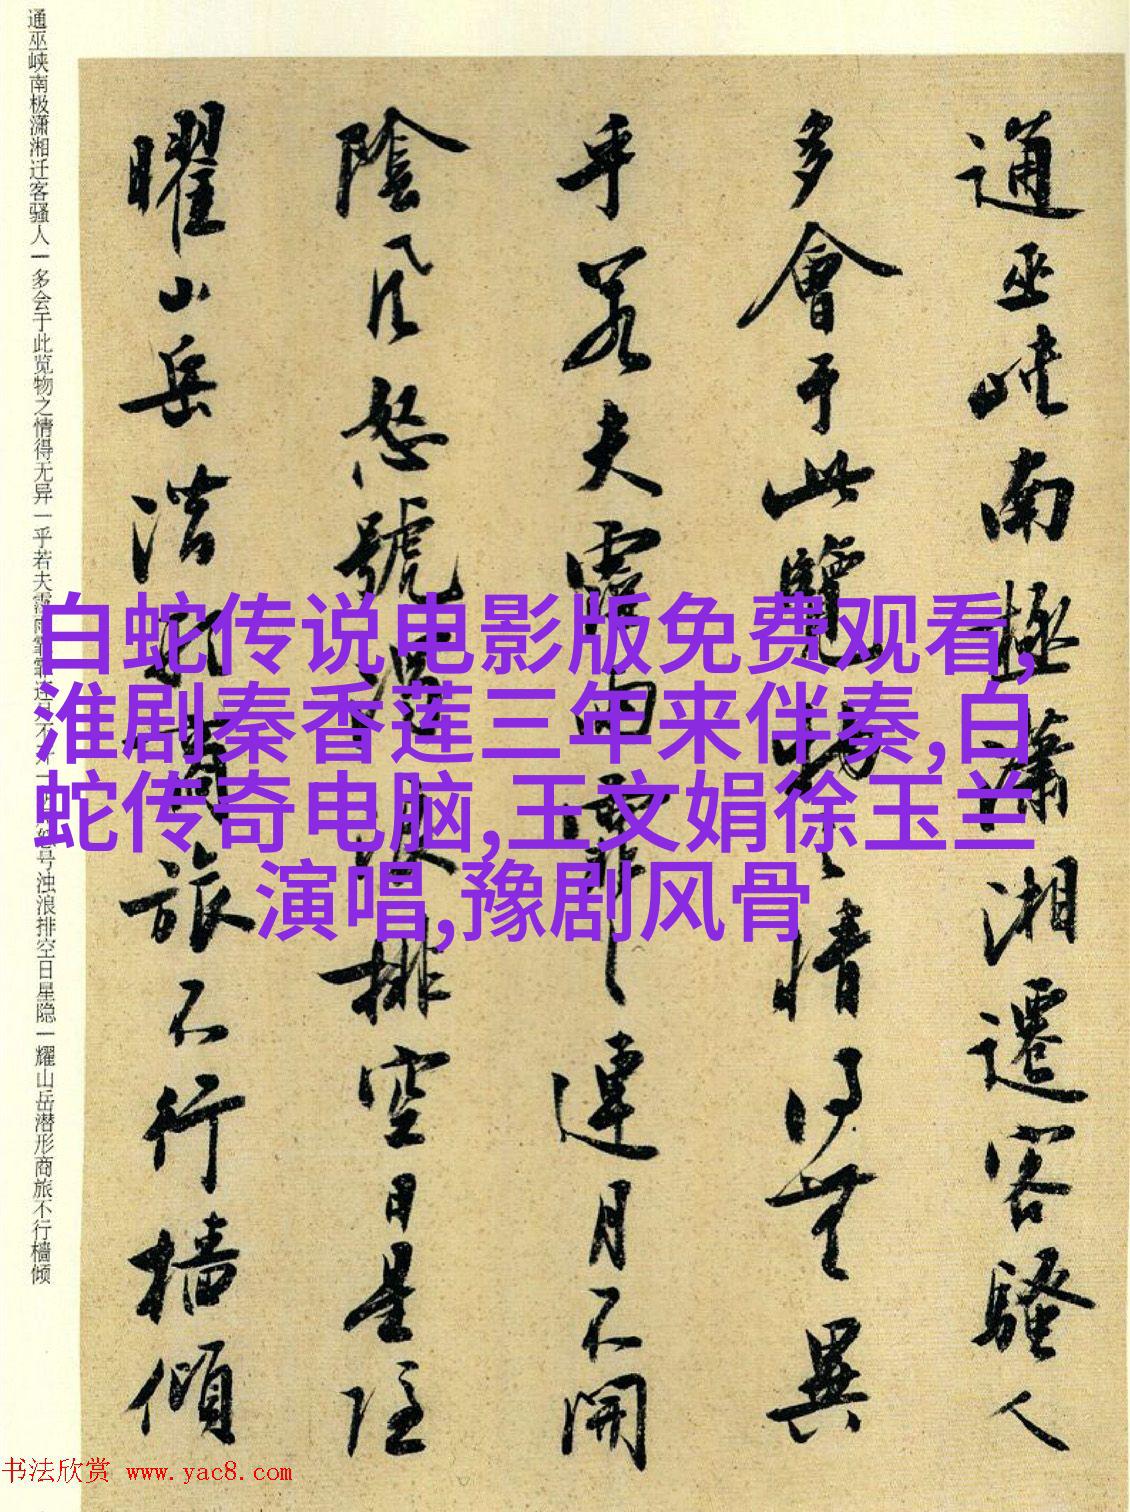 通巫峡南極瀟湘遷客騷人
多會于此覽物之情得無異
乎若夫霪雨霏霏連月不開
陰風怒號濁浪排空日星隱
曜山岳潜形商旅不行檣傾
通巫峡南极潇湘迁客骚人一多会于此览物之情得无异一乎若夫霪雨霏霏连月不开一阴风怒号浊浪排空日星隐一耀山岳潜形商旅不行樯倾
白蛇传说电影版免费观看,
淮剧秦香莲三年来伴奏,白
蛇传奇电脑,王文娟徐玉兰
演唱,豫剧风骨
书法欣赏 www.yac8.com